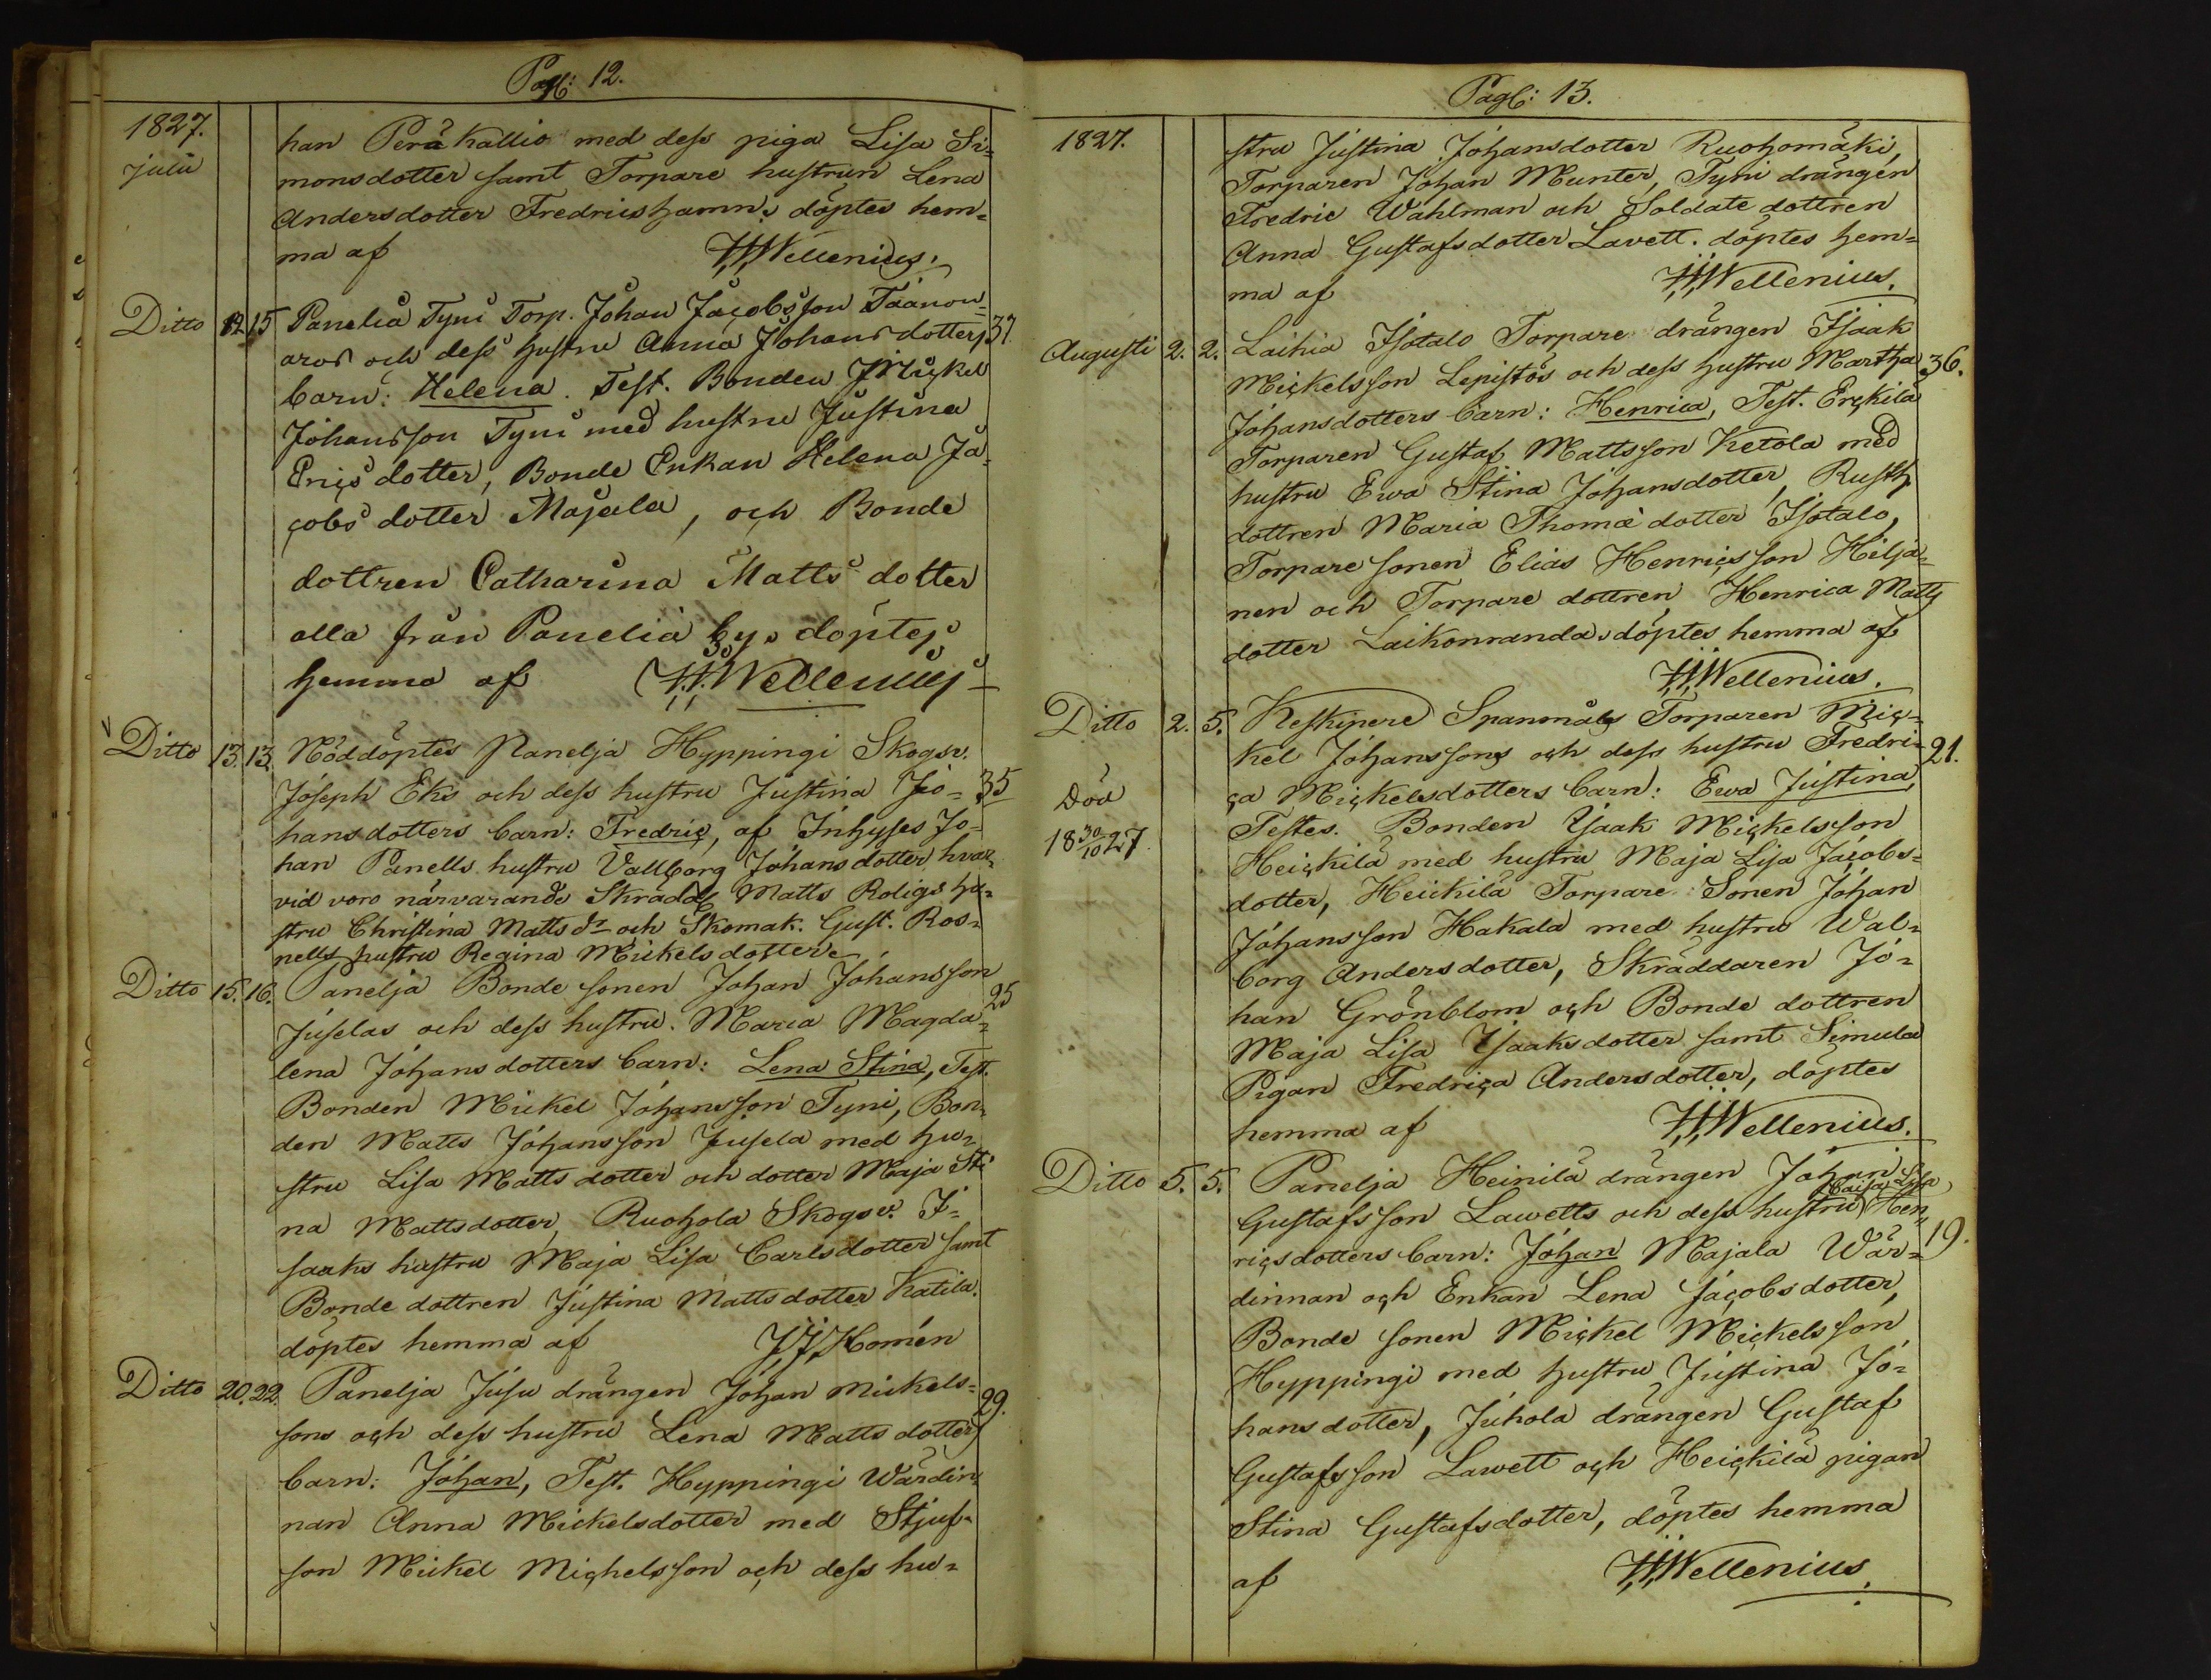 Pag: 12.
1827.
julii
han Peräkallio med dess piga Lisa Si=
monsdotter samt Torpare hustrun Lena
Andersdotter Fredricshamn. döptes hem=
ma af HWellenius.
Ditto 12. 15 Panelia Tyni Torp. Johan Jacobsson
aros och dess hustru Anna Johansdotters 37.
barn: Helena. Test. Bonden Mickel
Johansson Tyni med hustru Justina
Ericsdotter, Bonde Enkan Helena Ja=
cobsdotter Majala, och Bonde
dottren Catharina Mattsdotter
alla från Panelia by. döptes
hemma af HWellenius
Ditto 13. 13. Nöddöptes Panelja Hyppingi Skogsv.
Joseph Eks och dess hustru Justina Jo= 35
hansdotters barn: Fredric, af Inhyses Jo=
han Panells hustru Vallborg Johansdotter hvar
vid voro närvarande Skrädd Matts Roligs hu=
stru Christina Mattsdr och Skomak. Gust. Ros=
nells hustru Regina Mickelsdotter
Ditto 15. 16. Panelja Bonde sonen Johan Johansson
Juselas och dess hustru Maria Magda= 25
lena Johansdotters barn: Lena Stina, Test.
Bonden Mickel Johansson Tyni, Bon=
den Matts Johansson Jusela med hu=
stru Lisa Mattsdotter och dotter Maja Sti
na Mattsdotter, Ruohola Skogsv. I=
saaks hustru Maja Lisa Carlsdotter samt
Bonde dottren Justina Mattsdotter Katila.
döptes hemma af JJHomén
Ditto 20. 22. Panelja Jusu drängen Johan Mickels=
sons och dess hustru Lena Mattsdotters 29.
barn: Johan, Test. Hyppingi Wärdin=
nan Anna Mickelsdotter med Stjuf=
son Mickel Michelsson och dess hu=
Pag: 13.
1827.
stru Justina Johansdotter Ruohomäki,
Torparen Johan Munter, Tyni drängen
Fredric Wahlman och Soldate dottren
Anna Gustafsdotter Lavett. döptes hem=
ma af HWellenius.
Augusti 2. 2. Laihia Isotalo Torpare drängen Isaak
Mickelsson Lepistös och dess hustru Martha 36.
Johansdotters barn: Henrica, Test. Erckilä
Torparen Gustaf Mattsson Ketola med
hustru Ewa Stina Johansdotter, Rusth.
dottren Maria Thomædotter Isotalo,
Torpare sonen Elias Henricsson Hilja=
nen och Torpare dottren Henrica Matts
dotter Laikonranda. döptes hemma af
HWellenius.
Ditto 2. 5. Keskipere Spanmåls Torparen Mic=
kel Johanssons och dess hustru Fredri= 21.
ca Mickelsdotters barn: Ewa Justina,
Död
18 30/10 27.
Testes. Bonden Isaak Mickelsson
Heickilä med hustru Maja Lisa Jacobs=
dotter, Heickilä Torpare Sonen Johan
Johansson Hakala med hustru Wal=
borg Andersdotter, Skräddaren Jo=
han Grönblom och Bonde dottren
Maja Lisa Isaaksdotter samt Simula
Pigan Fredrica Andersdotter, döptes
hemma af HWellenius.
Ditto 5. 5. Panelja Heinilä drängen Johan
Caisa Lisa
Gustafsson Lawetts och dess hustru Hen=
ricsdotters barn: Johan Majala Wär= 19.
dinnan och Enkan Lena Jacobsdotter,
Bonde sonen Mickel Mickelsson
Hyppingi med hustru Justina Jo=
hansdotter, Juhola drängen Gustaf
Gustafsson Lawett och Heickilä pigan
Stina Gustafsdotter, döptes hemma
af HWellenius.